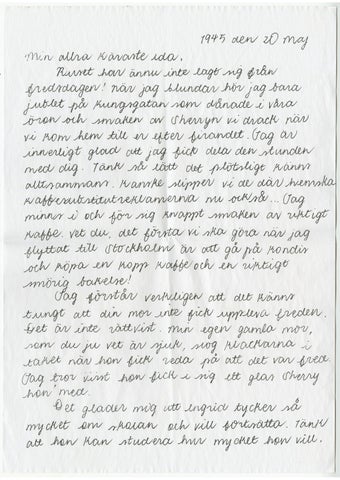 1945 den 20 maj
Min allra käraste Ida.
Ruset har ännu inte lagt sig från
fredsdagen! När jag blundar hör jag bara
jublet på Kungsgatan som dånade i våra
öron och smaken av Sherryn vi drack när
vi kom hem till er efter firandet. Jag är
innerligt glad att jag fick dela den stunden
med dig. Tänk så lätt det plötsligt känns
alltsammans. Kanske slipper vi de där hemska
kaffesubstitutreklamerna nu också... Jag
minns i och för sig knappt smaken av riktigt
kaffe. Vet du, det första vi ska göra när jag
flyttat till Stockholm är att gå på kondis
och köpa en kopp kaffe och en riktigt
smörig bakelse!
Jag förstår verkligen att det känns
tungt att din mor inte fick uppleva freden.
Det är inte rättvist. Min egen gamla mor,
som du ju vet är sjuk, slog klackarna i
taket när hon fick reda på att det var fred.
Jag tror visst hon fick i sig ett glas Sherry
hon med.
Det gläder mig att Ingrid tycker så
mycket om skolan och vill fortsätta. Tänk
att hon kan studera hur mycket hon vill.